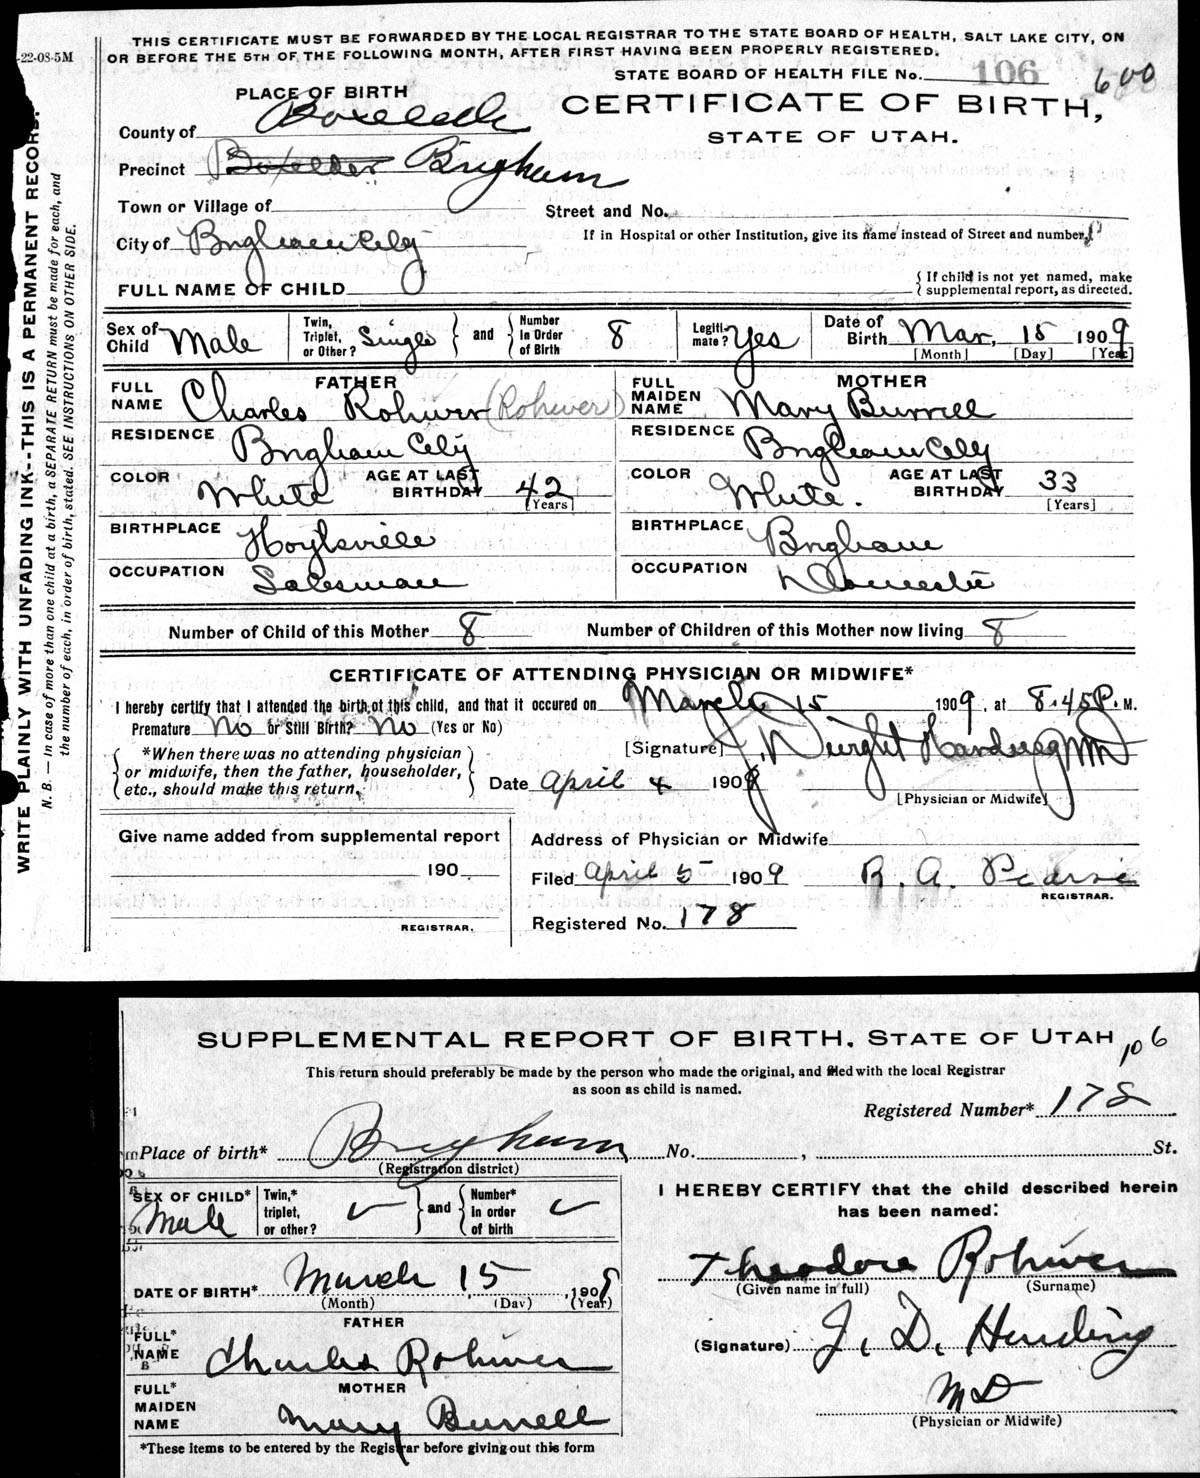 -22-08-5M
THIS CERTIFICATE MUST BE FORWARDED BY THE LOCAL REGISTRAR TO THE STATE BOARD OF HEALTH, SALT LAKE CITY, ON
OR BEFORE THE 5TH OF THE FOLLOWING MONTH, AFTER FIRST HAVING BEEN PROPERLY REGISTERED.
STATE BOARD OF HEALTH FILE No. 106 600
WRITE PLAINLY WITH UNFADING INK--THIS IS A PERMANENT RECORD.
N. B. — In case of more than one child at a birth, a SEPARATE RETURN must be made for each, and
the number of each, in order of birth, stated. SEE INSTRUCTIONS ON OTHER SIDE.
PLACE OF BIRTH
CERTIFICATE OF BIRTH,
STATE OF UTAH.
County of Boxelder
Precinct Boxelder Brigham
Town or Village of
Street and No.
City of Brigham City
If in Hospital or other Institution, give its name instead of Street and number.
FULL NAME OF CHILD
{ If child is not yet named, make
supplemental report, as directed.
Sex of Child Male
Twin, Triplet, or Other? Single
and
Number in Order of Birth 8
Legitimate? Yes
Date of Birth Mar. 15 1909
[Month] [Day] [Year]
FATHER
FULL NAME Charles Rohwer (Rohwer)
RESIDENCE Brigham City
COLOR White
AGE AT LAST BIRTHDAY 42
[Years]
BIRTHPLACE Hoytsville
OCCUPATION Salesman
MOTHER
FULL MAIDEN NAME Mary Burrell
RESIDENCE Brigham City
COLOR White.
AGE AT LAST BIRTHDAY 33
[Years]
BIRTHPLACE Brigham
OCCUPATION Domestic
Number of Child of this Mother 8
Number of Children of this Mother now living 8
CERTIFICATE OF ATTENDING PHYSICIAN OR MIDWIFE*
I hereby certify that I attended the birth of this child, and that it occured on March 15 1909, at 8.45 P. M.
Premature No or Still Birth? No (Yes or No)
*When there was no attending physician
or midwife, then the father, householder,
etc., should make this return.
[Signature] J. Dwight Harding MD
Date April 4 1909
[Physician or Midwife]
Give name added from supplemental report
190
REGISTRAR.
Address of Physician or Midwife
Filed April 5 1909 R. A. Pearse
REGISTRAR.
Registered No. 178
SUPPLEMENTAL REPORT OF BIRTH, STATE OF UTAH 106
This return should preferably be made by the person who made the original, and filed with the local Registrar
as soon as child is named.
Registered Number* 178
Place of birth* Brigham No. , St.
(Registration district)
SEX OF CHILD* Male
Twin,* triplet, or other? ✓
and
Number* in order of birth ✓
I HEREBY CERTIFY that the child described herein
has been named:
Theodore Rohwer
(Given name in full) (Surname)
DATE OF BIRTH* March 15, 1909
(Month) (Day) (Year)
FATHER
FULL* NAME Charles Rohwer
MOTHER
FULL* MAIDEN NAME Mary Burrell
(Signature) J. D. Harding
MD
(Physician or Midwife)
*These items to be entered by the Registrar before giving out this form